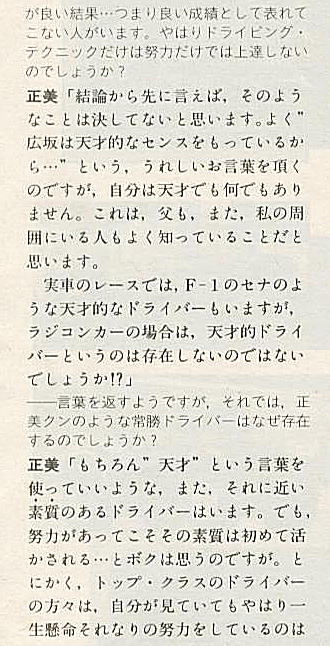 が良い結果…つまり良い成績として表れて
こない人がいます。やはりドライビング・
テクニックだけは努力だけでは上達しない
のでしょうか？
正美「結論から先に言えば，そのよう
なことは決してないと思います。よく”
広坂は天才的なセンスをもっているか
ら…”という，うれしいお言葉を頂く
のですが，自分は天才でも何でもあり
ません。これは，父も，また，私の周
囲にいる人もよく知っていることだと
思います。
実車のレースでは，F-1のセナのよ
うな天才的なドライバーもいますが，
ラジコンカーの場合は，天才的ドライ
バーというのは存在しないのではない
でしょうか!?」
――言葉を返すようですが，それでは，正
美クンのような常勝ドライバーはなぜ存在
するのでしょうか？
正美「もちろん”天才”という言葉を
使っていいような，また，それに近い
素質のあるドライバーはいます。でも，
努力があってこそその素質は初めて活
かされる…とボクは思うのですが。と
にかく，トップ・クラスのドライバー
の方々は，自分が見ていてもやはり一
生懸命それなりの努力をしているのは